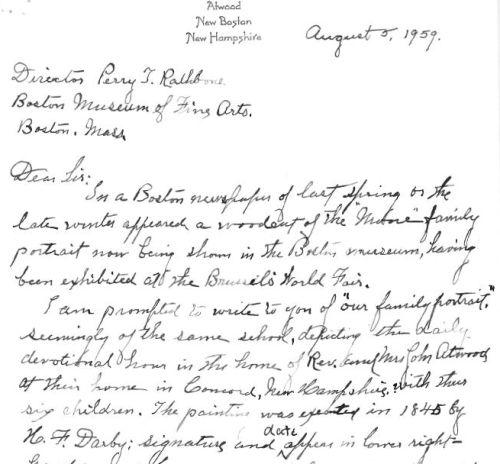 Atwood
New Boston
New Hampshire
August 5, 1959.
Director Perry T. Rathbone
Boston Museum of Fine Arts.
Boston. Mass
Dear Sir:
In a Boston newspaper of last spring or the
late winter appeared a woodcut of the "Moore" family
portrait now being shown in the Boston museum, having
been exhibited at the Brussels World Fair.
I am prompted to write to you of "our family portrait,"
seemingly of the same school, depicting the daily
devotional hour in the home of Rev. and Mrs John Atwood
at their home in Concord, New Hampshire, with their
six children. The painting was executed in 1845 by
H. F. Darby; signature and date appear in lower right-